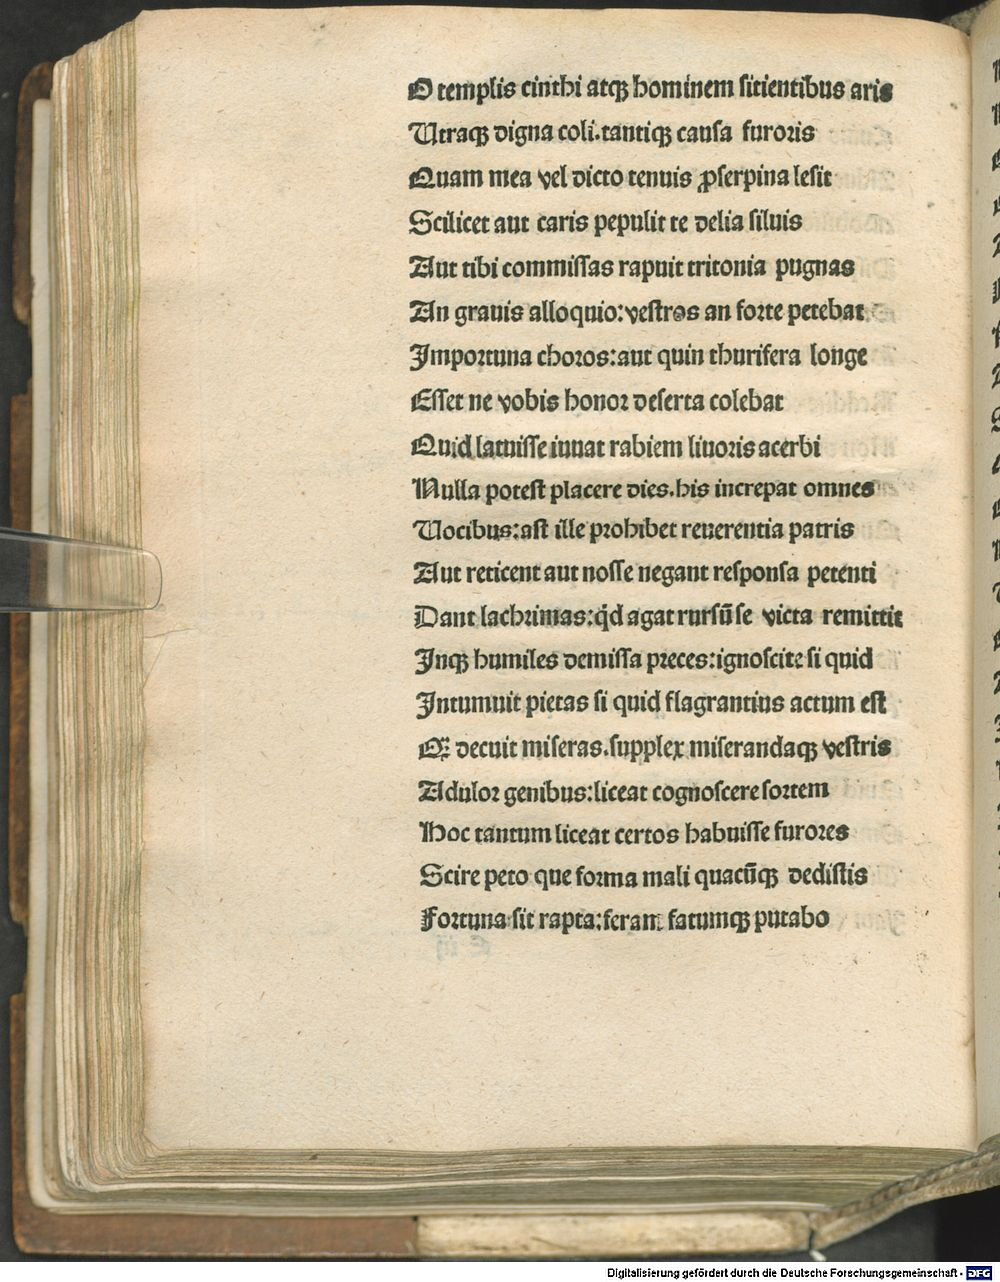 O templis cinthi atqꝫ hominem sitientibus aris
Utraqꝫ digna coli.tantiqꝫ causa furoris
Quam mea vel dicto tenuis ꝓserpina lesit
Scilicet aut caris pepulit te delia siluis
Aut tibi commissas rapuit tritonia pugnas
An grauis alloquio:vestros an forte petebat
Importuna choros:aut quin thurifera longe
Esset ne vobis honor deserta colebat
Quid latuisse iuuat rabiem liuoris acerbi
Nulla potest placere dies.his increpat omnes
Uocibus:ast ille prohibet reuerentia patris
Aut reticent aut nosse negant responsa petenti
Dant lachrimas:qd̓ agat rursūse victa remittit
Inqꝫ humiles demissa preces:ignoscite si quid
Intumuit pietas si quid flagrantius actum est
Qꝫ decuit miseras.supplex miserandaqꝫ vestris
Adulor genibus:liceat cognoscere sortem
Hoc tantum liceat certos habuisse furores
Scire peto que forma mali quacūqꝫ dedistis
Fortuna sit rapta:feram fatumqꝫ putabo
Digitalisierung gefördert durch die Deutsche Forschungsgemeinschaft - DFG